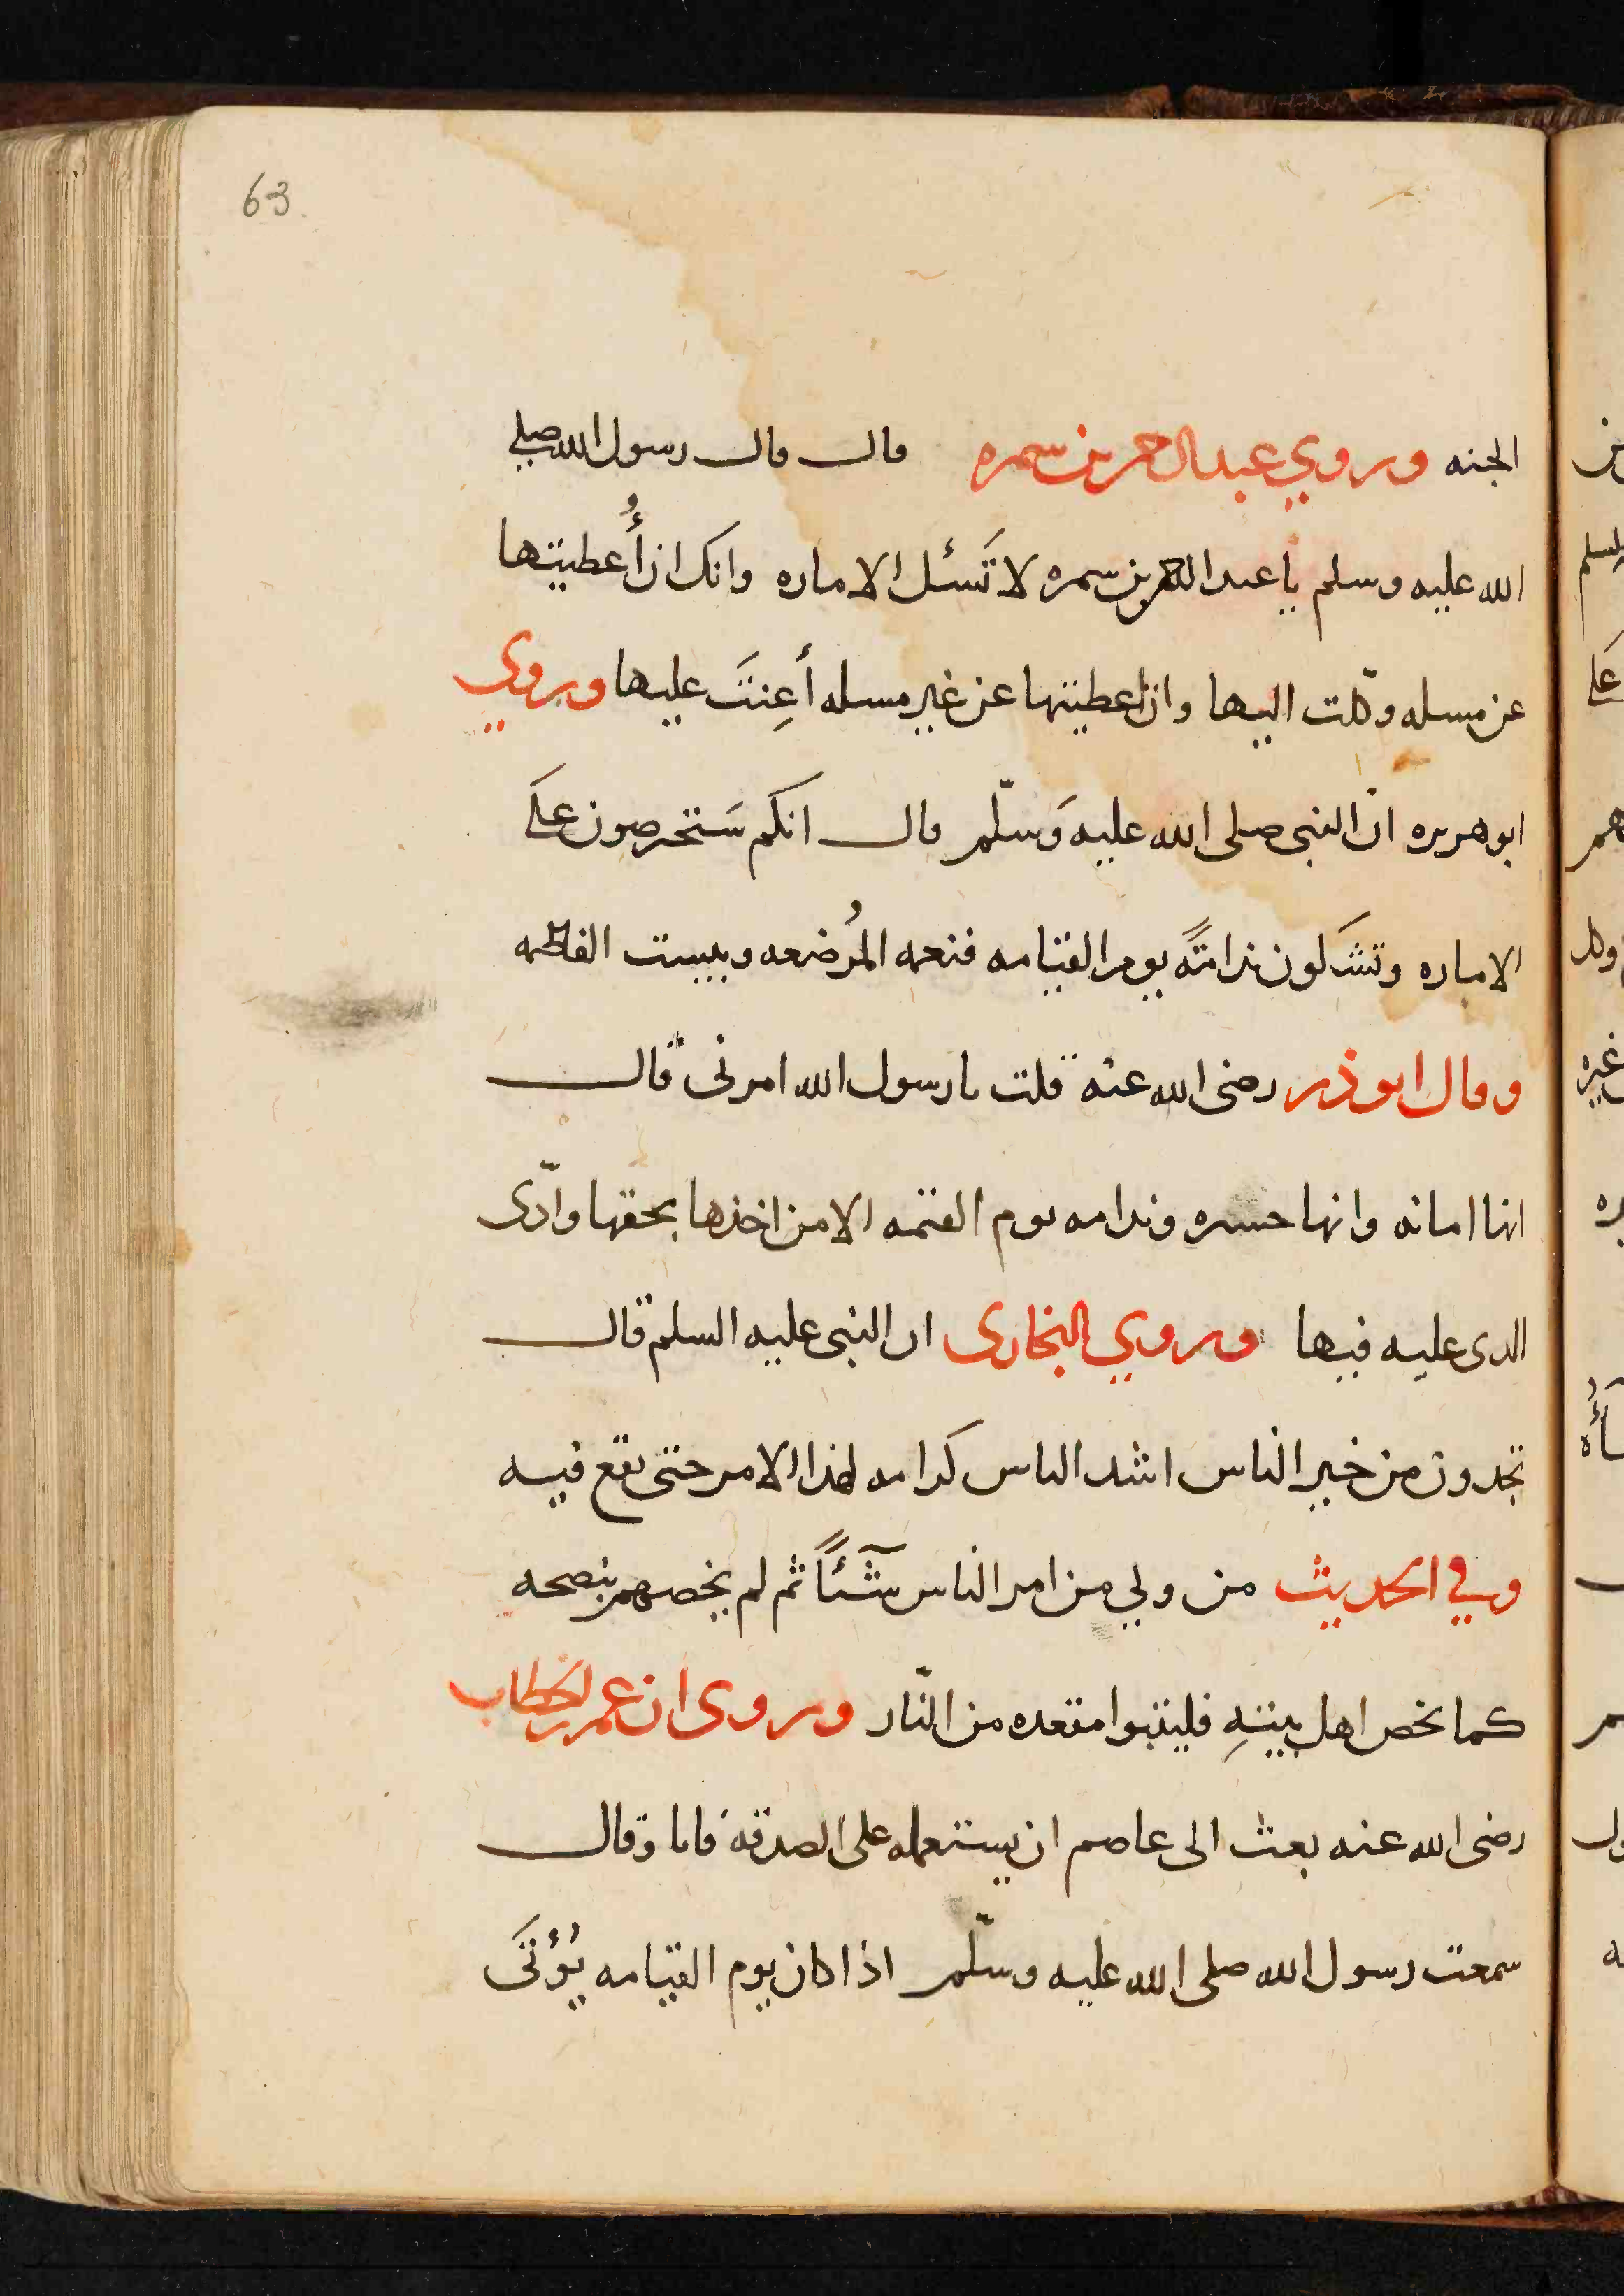 63
الجنه وروي عبد الرحمن بن سمره قال قال رسول الله صلى
الله عليه وسلم يا عبد الرحمن بن سمره لا تَسئل الاماره وانك ان أُعطيتها
عن مسله وكّلت اليها وان اعطيتها عن غير مسله أعِنتَ عليها وروي
ابو هريره ان النبي صلى الله عليه وَسلّم قال انكم سَتحرصون علَى
الاماره وتشَكون ندامتًه يوم القيامه فنعمه المُرضعه وبيست الفاطمه
وقال ابو ذر رضى الله عنه قلت يا رسول الله امرنى قال
انها امانه وانها حسره وندامه يوم القيمه الا من اخذها بحقها وادّى
الذى عليه فيها وروي البخارى ان النبى عليه السلم قال
تجدون من خير الناس اشد الناس كرامه لهذا الامر حتى يقع فيه
وفي الحديث من ولي من امر الناس شَئًا ثم لم يخصهم بنصحه
كما يخص اهل بيتهِ فليتبوا مقعده من النّار وروى ان عمر بن الخطاب
رضى الله عنه بعث الى عاصم ان يستعمله على الصدقه فابا وقال
سمعت رسول الله صلى الله عليه وسلّم اذا كان يوم القيامه يُؤتَى